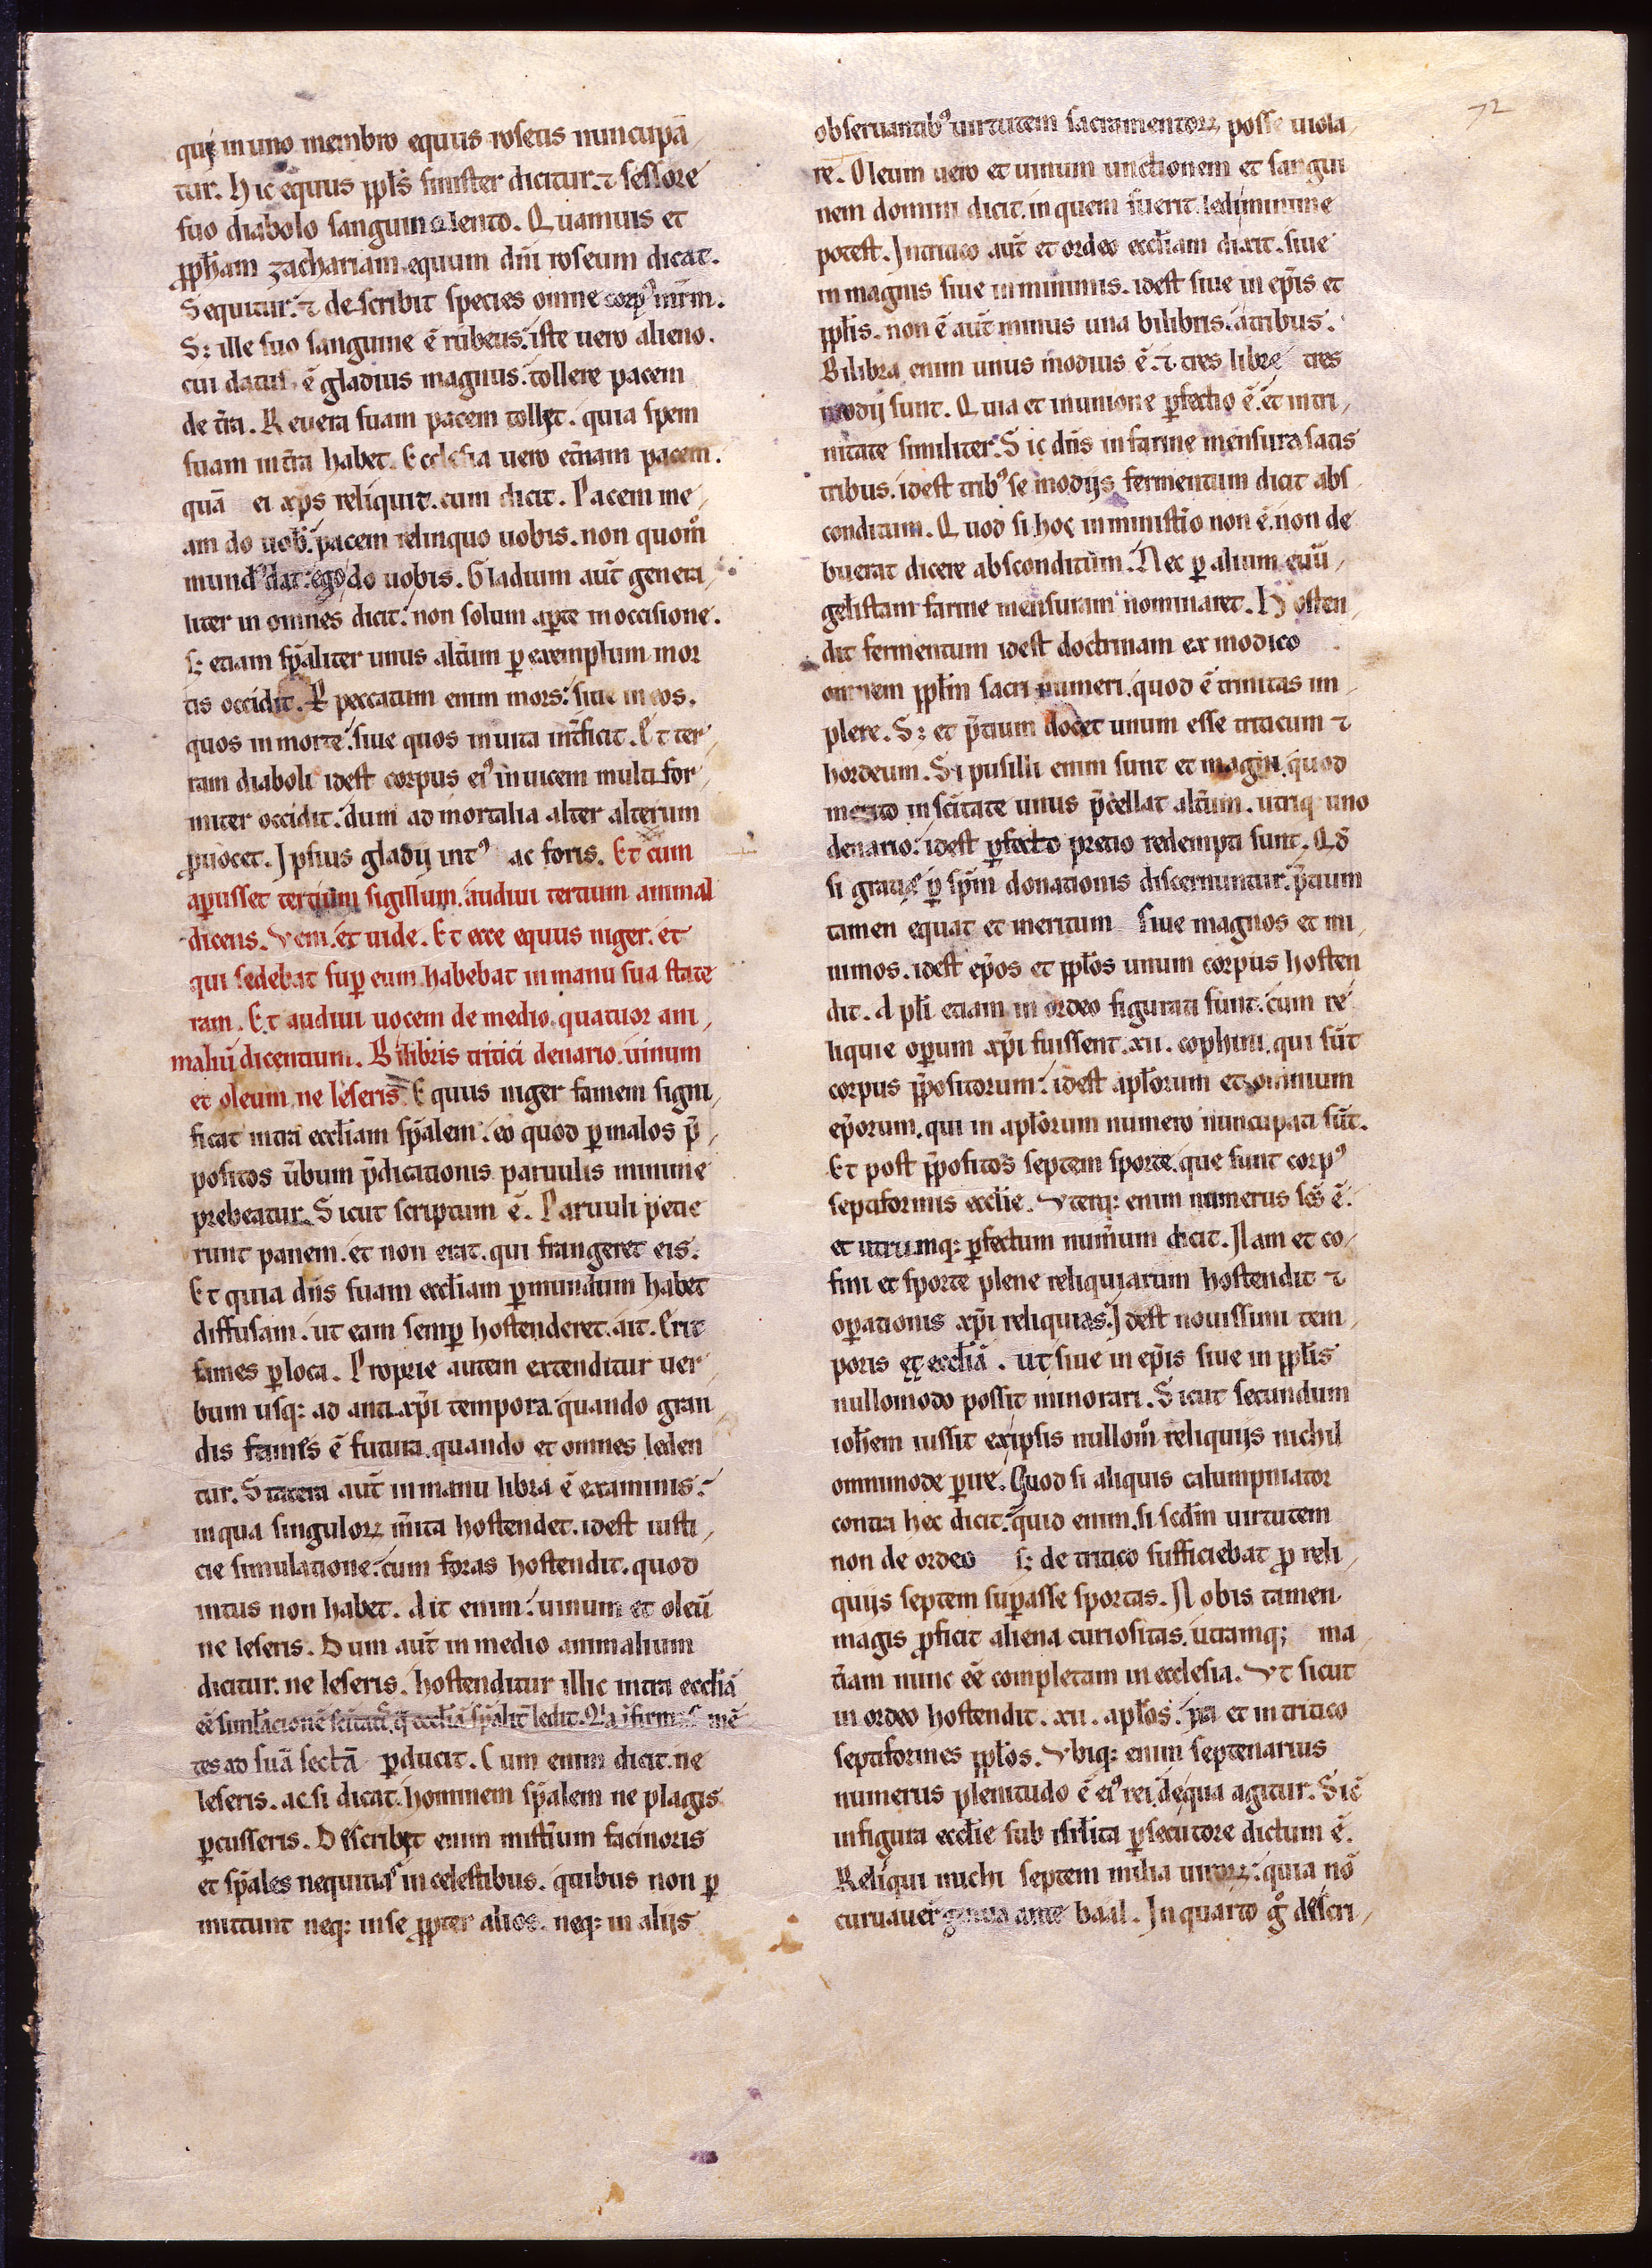 72
qui in uno membro equus roseus nuncupā
tur. Hic equus ppłs sinister dicitur. ⁊ sessore
suo diabolo sanguinolento. Quamuis et
ppħam zachariam equum dñi roseum dicat.
Sequitur. ⁊ describit species omne corpꝰ nr̄m.
S; ille suo sanguine ē rubeus. iste uero alieno.
cui datus ē gladius magnus. tollere pacem
de t̄ra. Reuera suam pacem tollet. quia spem
suam in t̄ra habet. Ecclesia uero et̄nam pacem.
quā ei xp̄s reliquit. cum dicit. Pacem me
am do uob. pacem relinquo uobis. non quom̊
mundꝰ dat. ego do uobis. Gladium aut̄ genera
liter in omnes dicit. non solum aꝑte in occisione.
s; etiam sp̄aliter unus alt̄um ꝑ exemplum mor
tis occidit. peccatum enim mors. siue in eos.
quos in morte. siue quos in uita int̄ficit. Et ter
ram diaboli idest corpus eiꝰ inuicem multi for
miter occidit. dum ad mortalia alter alterum
ꝓuocet. Ipsius gladij intꝰ ac foris. Et cum
aꝑuisset tertium sigillum. audiui tertium animal
dicens. Veni. et uide. Et ecce equus niger. et
qui sedebat suꝑ eum. habebat in manu sua state
ram. Et audiui uocem de medio quatuor ani
maliū dicentium. Bilibris tritici denario. uinum
et oleum ne leseris. Equus niger famem signi
ficat intra eccłiam sp̄alem. eo quod ꝑ malos p̄
positos ūbum p̄dicationis paruulis minime
prebeatur. Sicut scriptum ē. Paruuli petie
runt panem. et non erat. qui frangeret eis.
Et quia dñs suam eccłiam ꝑ mundum habet
diffusam. ut eam semꝑ hostenderet. ait. Erit
fames ꝑ loca. Proprie autem extenditur uer
bum usq; ad anti xp̄i tempora. quando gran
dis fames ē futura. quando et omnes leden
tur. Statera aut̄ in manu libra ē examinis.
in qua singuloꝝ m̄ita hostendet. idest iusti
cie simulatione. cum foras hostendit. quod
intus non habet. Ait enim. uinum et oleū
ne leseris. Dum aut̄ in medio animalium
dicitur. ne leseris. hostenditur illic intra eccłiā
eē simłacionē sc̄itati. q̄ eccłiā sp̄alit̄ ledit. mē
tes ad suā sectā ꝑducit. Cum enim dicit. ne
leseris. ac si dicat. hominem sp̄alem ne plagis
ꝑcusseris. Describet enim mist̄ium facinoris
et sp̄ales nequitias in celestibus. quibus non ꝑ
mittunt neq; in se ꝓpter alios. neq; in alijs
obseruantibꝰ uirtutem sacramentoꝝ posse uiola
re. Oleum uero et uinum unctionem et sangui
nem domini dicit. in quem fuerit. ledi minime
potest. In tritico aut̄ et ordeo eccłiam dixit. siue
in magnis siue in minimis. idest siue in ep̄is et
ppłis. non ē aut̄ minus una bilibris. a tribus.
Bilibra enim unus modius ē. ⁊ tres libre tres
modij sunt. Quia et in unione ꝑfectio ē. et in tri
nitate similiter. Sic dñs in farine mensura satis
tribus. idest tribꝰ se modijs fermentum dicit abs
conditum. Quod si hoc in minist̄io non ē. non de
buerat dicere absconditum. Nec ꝑ alium euū
gelistam farine mensuram nominaret. Hosten
dit fermentum idest doctrinam ex modico
omnem ppłm sacri numeri. quod ē trinitas im
plere. S; et p̄tium docet unum esse triticum ⁊
hordeum. Si pusilli enim sunt et magni. quod
merito in sc̄itate unus p̄cellat alt̄um. utriq; uno
denario. idest ꝑfecto pretio redempti sunt. Qđ
si gratie ꝑ sp̄m donationis discernuntur. p̄tium
tamen equat et meritum siue magnos et mi
nimos. idest ep̄os et ppłos unum corpus hosten
dit. Apłi etiam in ordeo figurati sunt. cum re
liquie oꝑum xp̄i fuissent. xii. cophini. qui sūt
corpus p̄positorum. idest apłorum et omnium
ep̄orum. qui in apłorum numero nuncupati sūt.
Et post p̄positos septem sporte. que sunt corpꝰ
septiformis eccłie. Vterq; enim numerus sc̄s ē.
et utrumq; ꝑfectum num̄um dicit. Nam et co
fini et sporte plene reliquiarum hostendit ⁊
oꝑationis xp̄i reliquias. Idest nouissimi tem
poris et eccłiā. ut siue in ep̄is siue in ppłis
nullomodo possit minorari. Sicut secundum
ioħem iussit ex ipsis nullom̊ reliquijs nichil
omnimode ꝑire. Quod si aliquis calumpniator
contra hec dicit. quid enim. si scđm uirtutem
non de ordeo s; de tritico sufficiebat ꝓ reli
quijs septem suꝑasse sportas. Nobis tamen
magis ꝓficit aliena curiositas. utramq; ma
t̄iam nunc eē completam in ecclesia. Vt sicut
in ordeo hostendit. xii. apłos. ita et in tritico
septiformes ppłos. Vbiq; enim septenarius
numerus plenitudo ē eiꝰ rei de qua agitur. Sic
in figura eccłie sub isrłita ꝑsecutore dictum ē.
Reliqui michi septem milia uiroꝝ. quia nō
curuauer̄ genua ante baal. In quarto g̊ descri